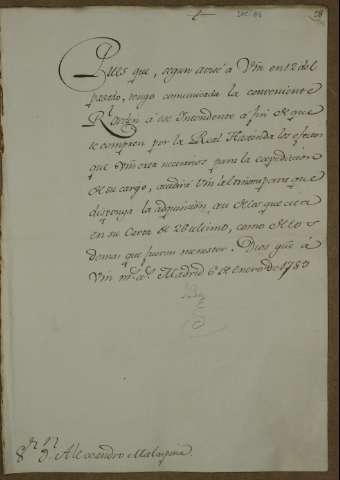 28
Pues que, segun avisé á Vm en 12 del
pasado, tengo comunicada la conveniente
Rl orden á ese Intendente á fin de que
se compren por la Real Hazienda los efectos
que Vm crea necesarios para la expedicion
de su cargo, acudirá Vm al mismo para que
disponga la adquisicion, asi de los que cita
en su Carta de 26 ultimo, como de los
demas que fueren menester. Dios gue á
Vm ms. as. Madrid 6 de enero de 1789
Sr. Dn. Alexandro Malaspina